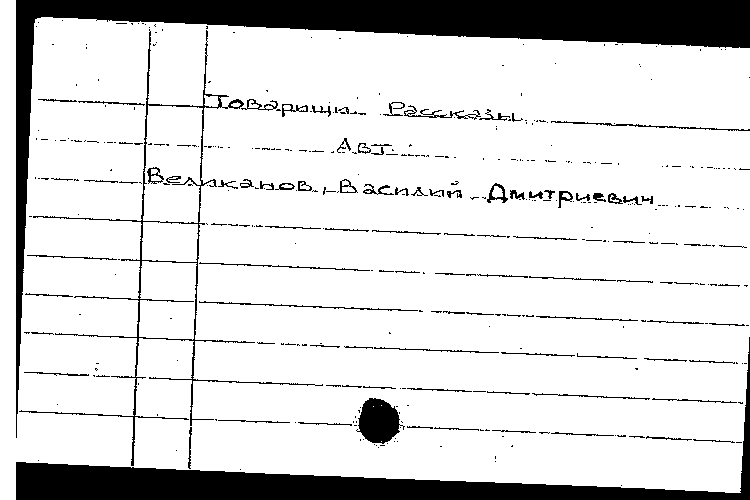 Товарищи. Рассказы.
Авт.
Великанов, Василий Дмитриевич